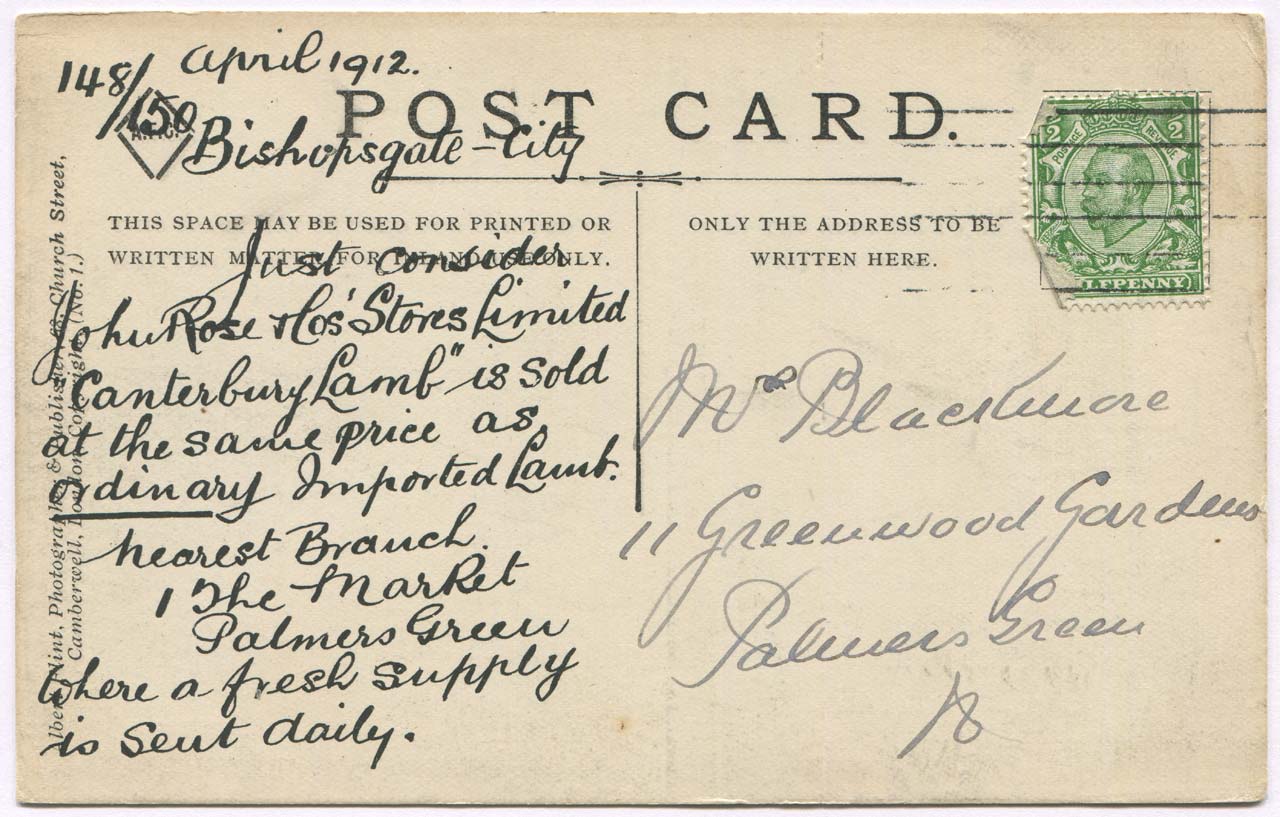 April 1912.
148/150
Bishopsgate - City
POST CARD.
THIS SPACE MAY BE USED FOR PRINTED OR
WRITTEN MATTER FOR INLAND USE ONLY.
Just consider
John Rose & Co's Stores Limited
"Canterbury Lamb" is sold
at the same price as
ordinary Imported Lamb.
nearest Branch.
1 The Market
Palmers Green
Where a fresh supply
is sent daily.
ONLY THE ADDRESS TO BE
WRITTEN HERE.
2 POSTAGE REVENUE 2
LFPENNY
Mrs Blackmore
11 Greenwood Gardens
Palmers Green
N
lbert Flint, Photographer & Publisher, Church Street,
Camberwell, London Copyright (No. 1.)